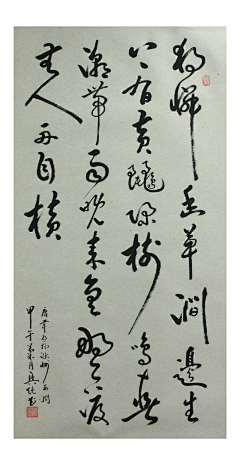 獨憐幽草澗邊生
上有黃鸝深樹鳴春
潮帶雨晚來急野渡
無人舟自橫
唐韋應物滁州西澗
甲午